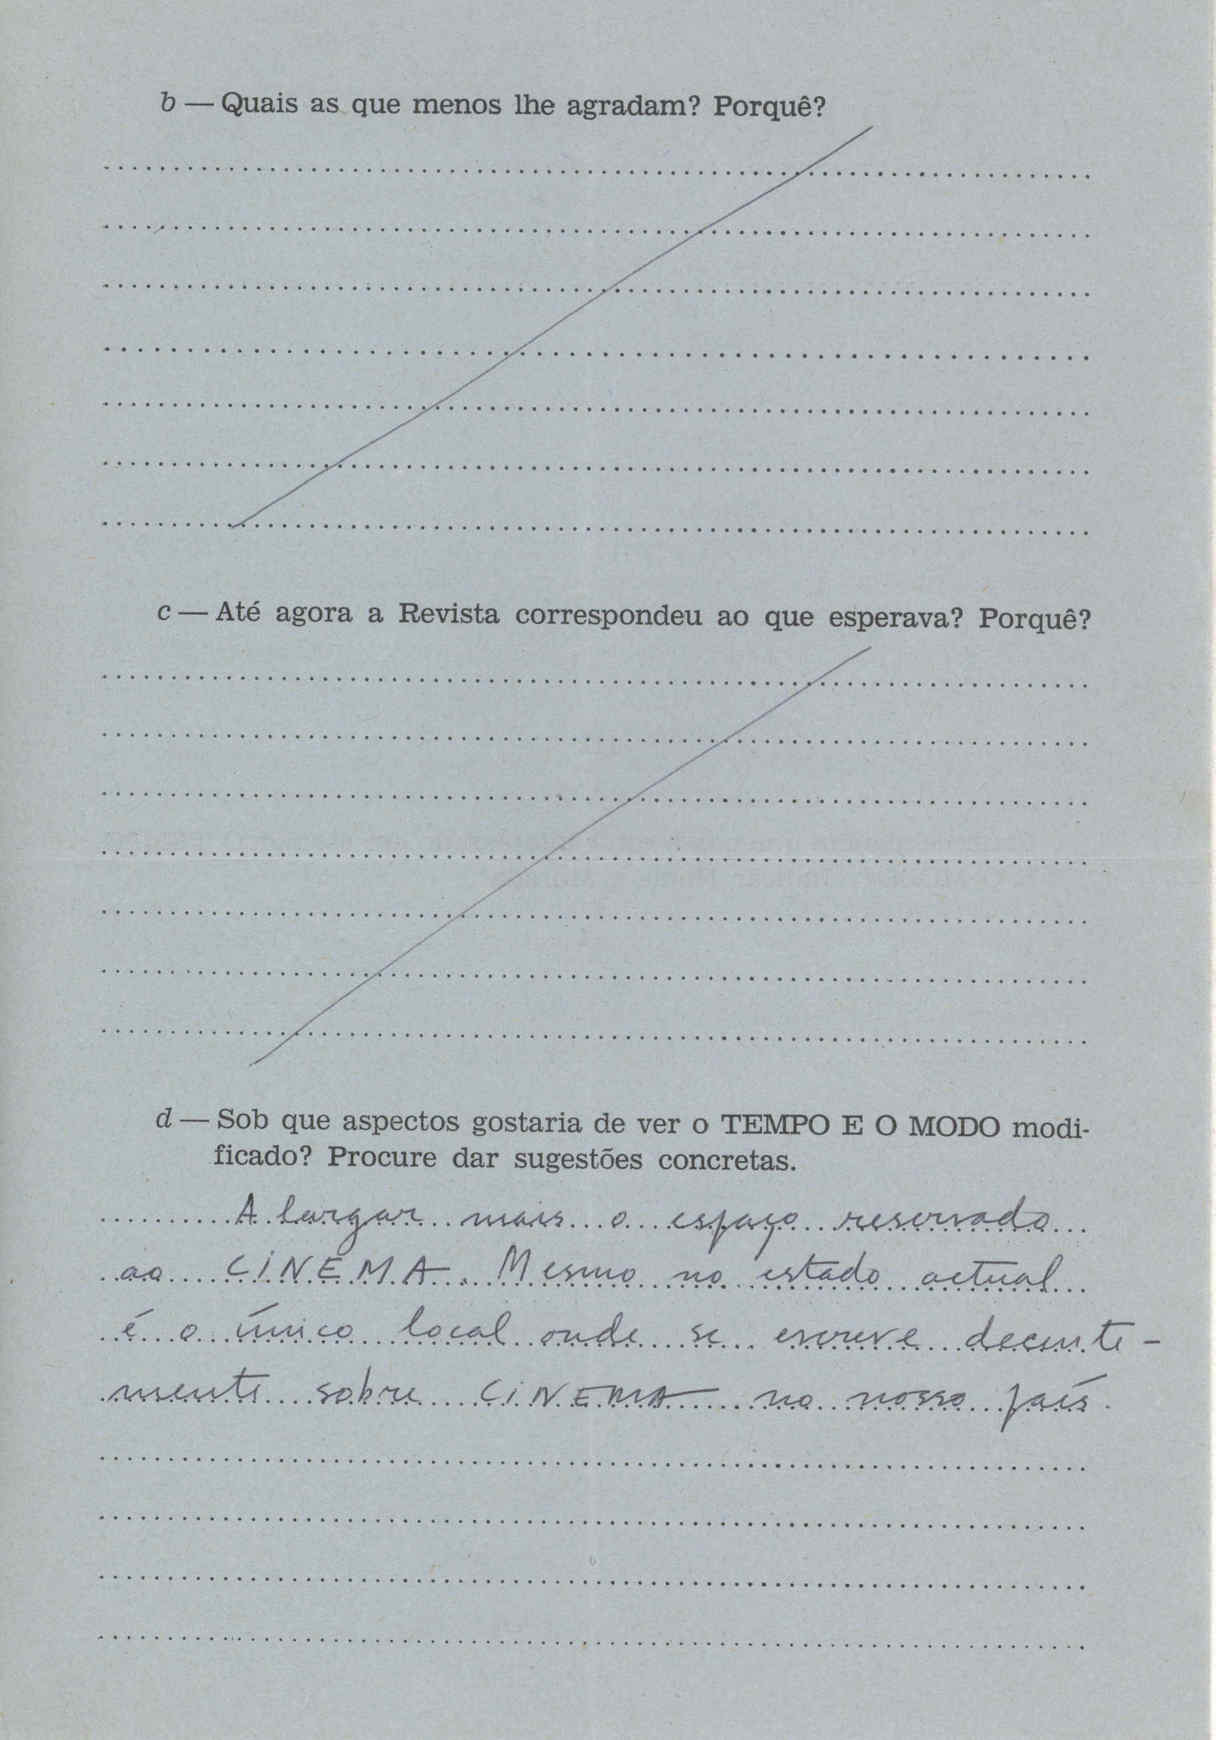 b — Quais as que menos lhe agradam? Porquê?
c — Até agora a Revista correspondeu ao que esperava? Porquê?
d — Sob que aspectos gostaria de ver o TEMPO E O MODO modi-
ficado? Procure dar sugestões concretas.
Alargar mais o espaço reservado
ao CINEMA. Mesmo no estado actual
é o único local onde se escreve decente-
mente sobre CINEMA no nosso país.